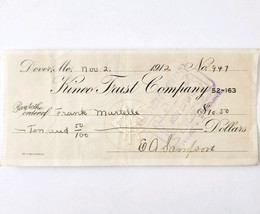 Dover, Me, Nov. 2, 1912 No. 947
Kineo Trust Company 52-163
Pay to the order of Frank Martelle $10.50
Ten and 50/100 Dollars
E A Sampson